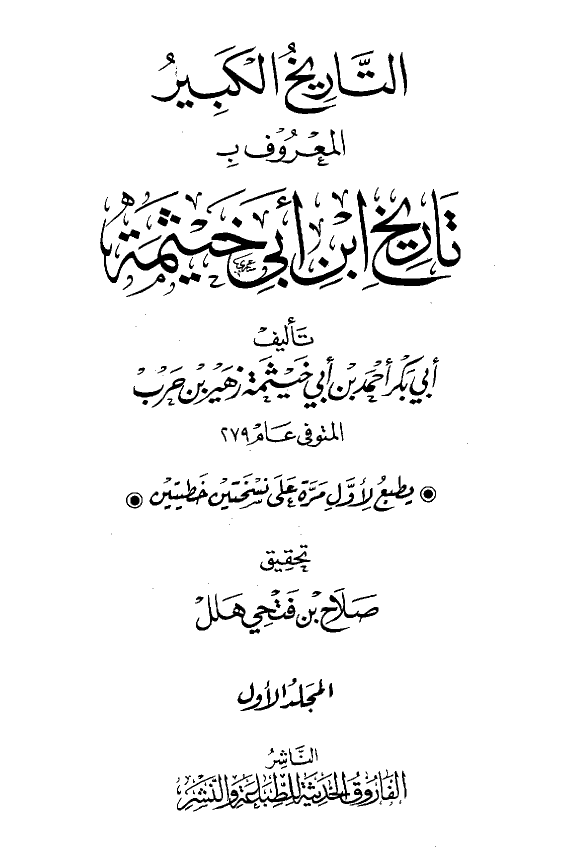 التَّارِيخُ الكَبِيرُ
المَعْرُوف بِـ
تَارِيخِ ابْنِ أَبِي خَيْثَمَة
تأليف
أبي بكر أحمد بن أبي خيثمة زهير بن حرب
المتوفى عام ٢٧٩
يطبع لأوَّل مرَّة على نسختين خطيتين
تحقيق
صلاح بن فتحي هلل
المجلد الأول
النَّاشِرُ
الفَارُوقُ الحَدِيثَةُ لِلطِّبَاعَةِ وَالنَّشْرِ